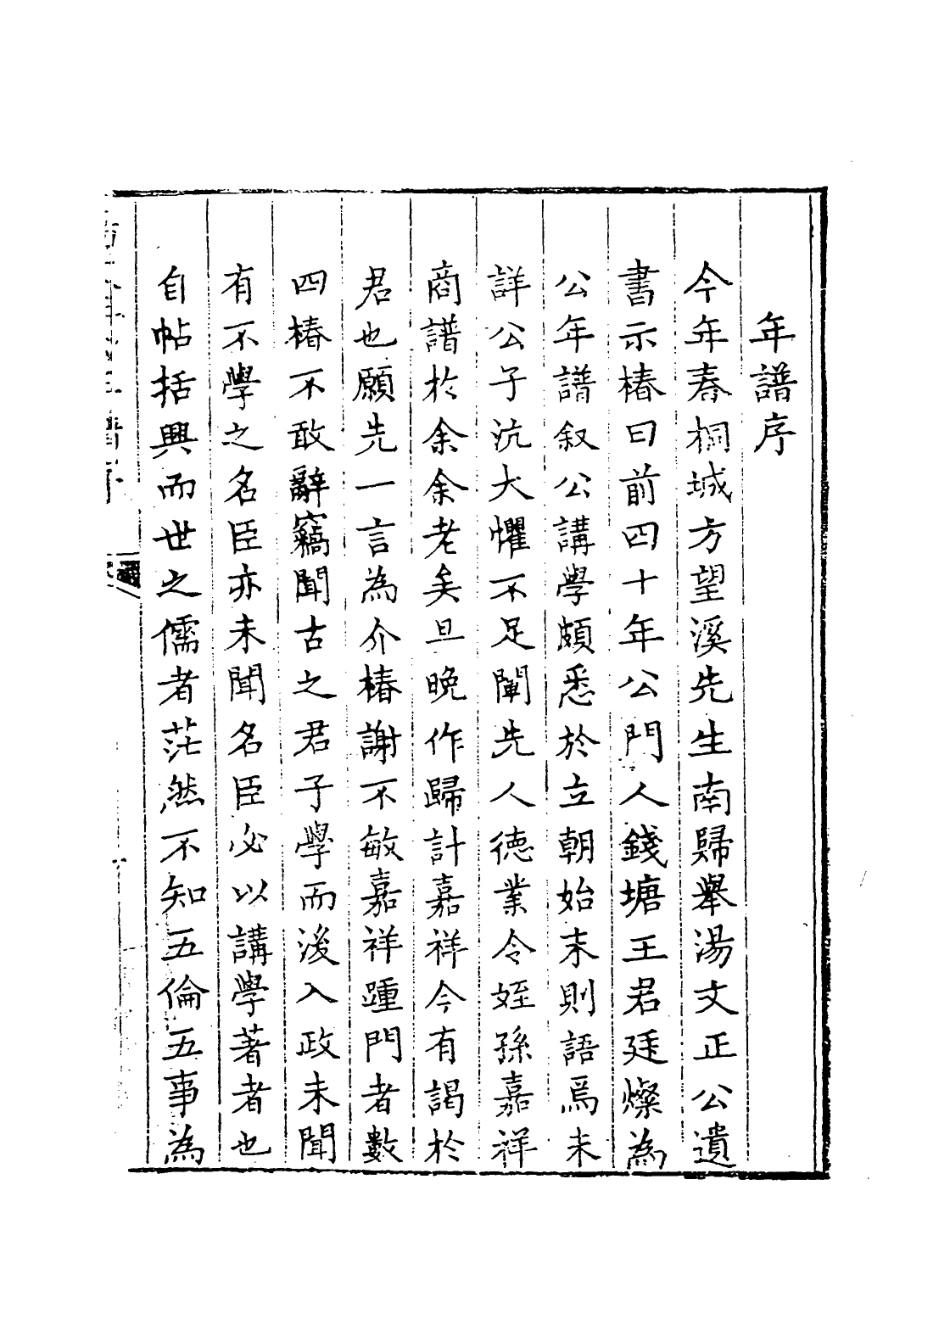 年譜序
今年春桐城方望溪先生南歸舉湯文正公遺
書示椿曰前四十年公門人錢塘王君廷燦為
公年譜叙公講學頗悉於立朝始末則語焉未
詳公子沆大懼不足闡先人德業令姪孫嘉祥
商譜於余余老矣旦晚作歸計嘉祥今有謁於
君也願先一言為介椿謝不敏嘉祥踵門者數
四椿不敢辭竊聞古之君子學而後入政未聞
有不學之名臣亦未聞名臣必以講學著者也
自帖括興而世之儒者茫然不知五倫五事為